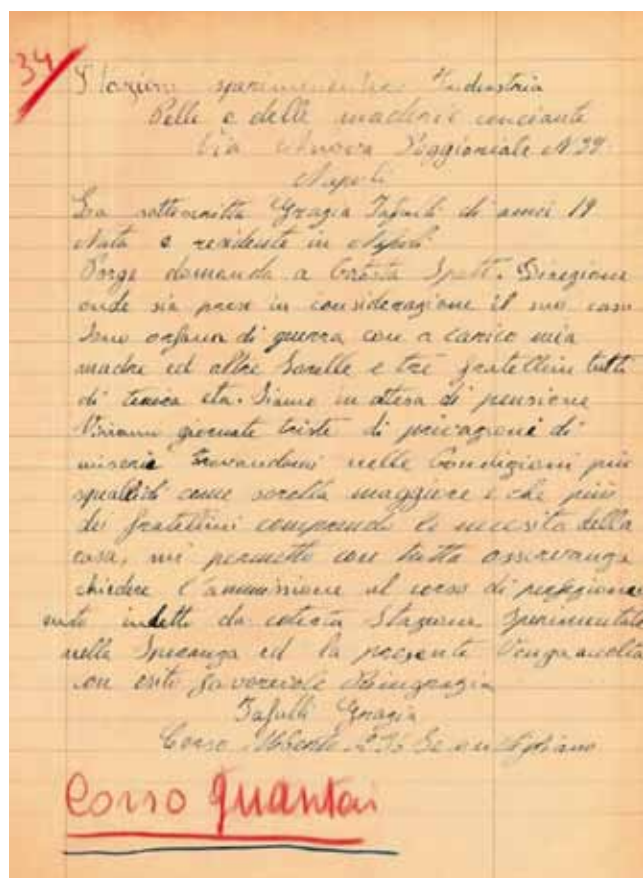 34
Stazione sperimentale Industria
Pelle e delle materie concianti
Via Nuova Poggioreale N 39
Napoli
La sottoscritta Grazia di anni 19
Nata e residente in Napoli
Porge domanda a Cotesta Spett. Direzione
onde sia preso in considerazione il suo caso
Sono orfana di guerra con a carico mia
madre ed altre Sorelle e tre fratellini tutti
di tenera eta. Siamo in attesa di pensione
Viviamo giornate triste di privazioni di
miseria trovandomi nelle Condizioni più
squallidi come sorella maggiore e che più
dei fratellini comprendo le necessita della
casa, mi permetto con tutta osservanza
chiedere l'ammissione al corso di perfeziona
mento indetto da cotesta Stazione Sperimentale
nella Speranza ed la presente Venga accolta
con esito favorevole Ringrazia
Grazia
Corso Secondigliano
Corso guantai